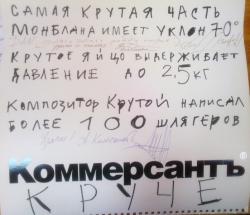 САМАЯ КРУТАЯ ЧАСТЬ
МОНБЛАНА ИМЕЕТ УКЛОН 70°
КРУТОЕ ЯЙЦО ВЫДЕРЖИВАЕТ
ДАВЛЕНИЕ ДО 2,5 КГ
КОМПОЗИТОР КРУТОЙ НАПИСАЛ
БОЛЕЕ 100 ШЛЯГЕРОВ
Коммерсантъ®
КРУЧЕ